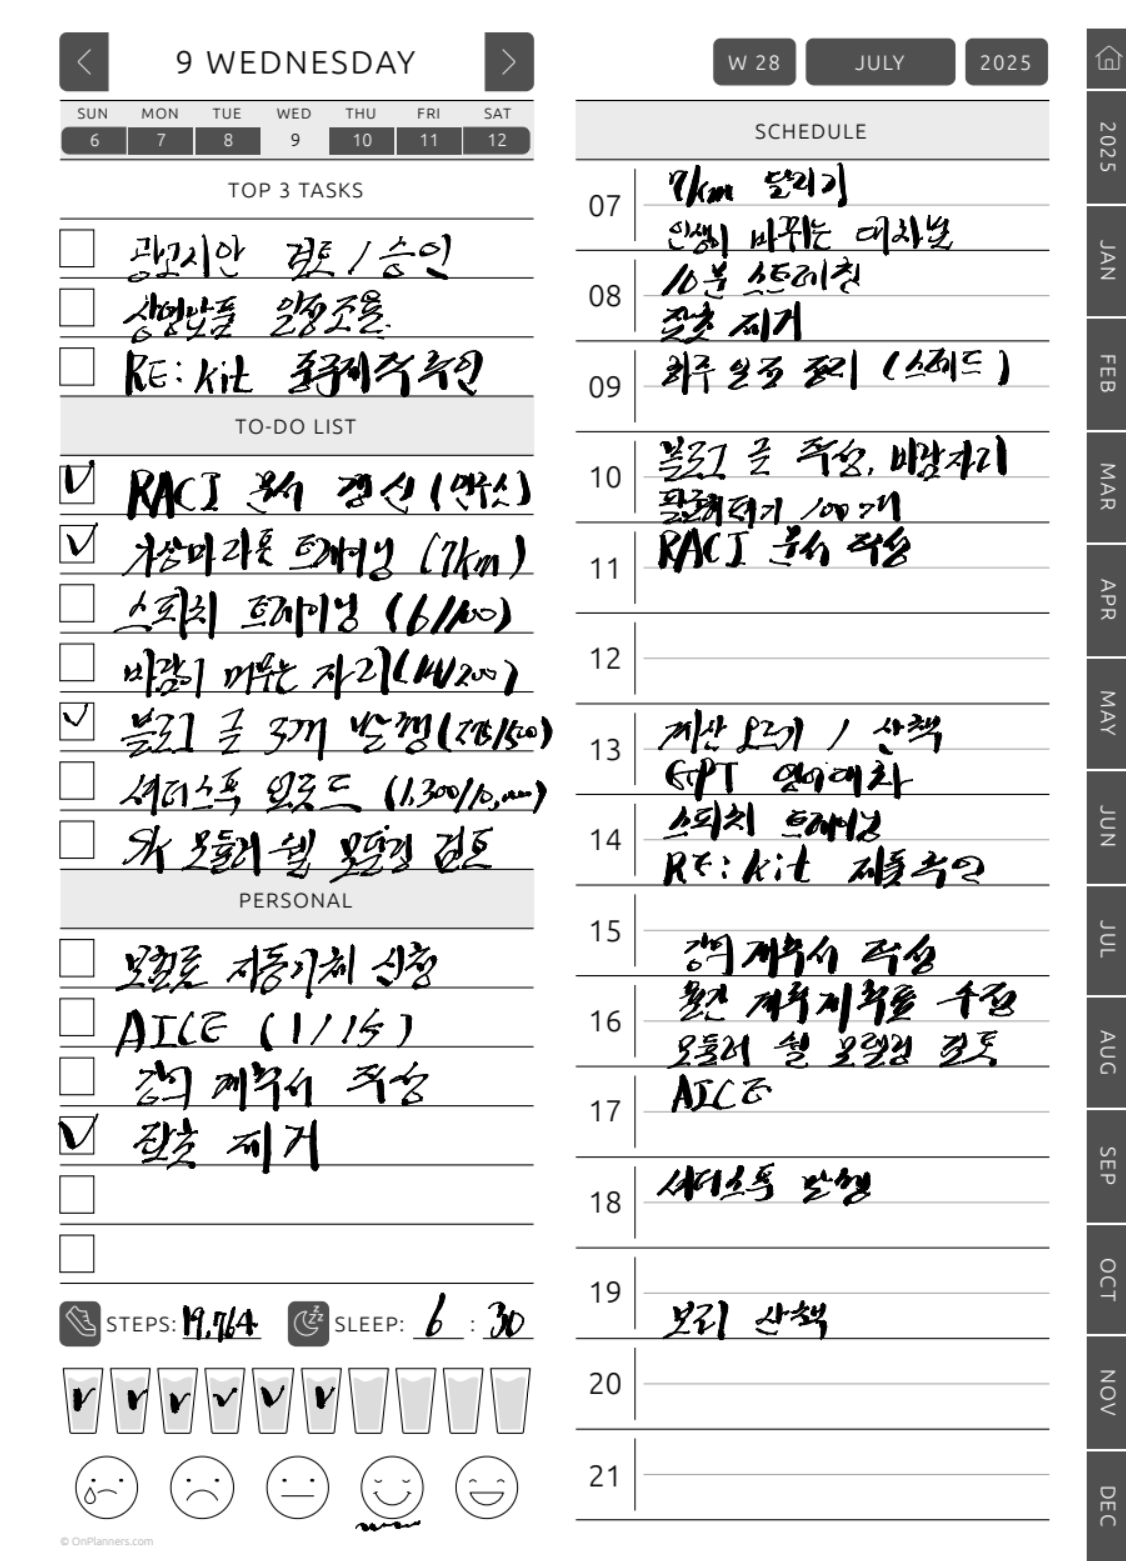 9 WEDNESDAY
SUN MON TUE WED THU FRI SAT
6 7 8 9 10 11 12
TOP 3 TASKS
광고시안 검토 / 승인
상명남품 일정조율.
RE: kit 출국제작 확인
TO-DO LIST
RACI 문서 갱신 (연수신)
가상마라톤 트레이닝 (7km)
스피치 트레이닝 (6/100)
바람이 머무는 자리 (141/200)
블로그 글 3개 발행
셔터스톡 업로드 (1,300/10,000)
SK 모듈러 쉘 모델링 검토
PERSONAL
모컬로 자동기체 신청
AICE (1/15)
강의 계획서 작성
잡초 제거
STEPS: 19,764 SLEEP: 6 : 30
© OnPlanners.com
W 28 JULY 2025
SCHEDULE
07 7km 달리기
인생이 바뀌는 대화법
08 10분 스트레칭
잡초 제거
09 하루 일정 정리 (스레드)
10 블로그 글 작성, 바람자리
팔로워 늘리기 100개
11 RACI 문서 작성
12
13 계산 오르기 / 산책
GPT 영어대화
14 스피치 트레이닝
RE: kit 제품 확인
15 강의 계획서 작성
16 물건 계획 제작료 수정
모듈러 쉘 모델링 검토
17 AICE
18 셔터스톡 발행
19 보리 산책
20
21
2025
JAN
FEB
MAR
APR
MAY
JUN
JUL
AUG
SEP
OCT
NOV
DEC